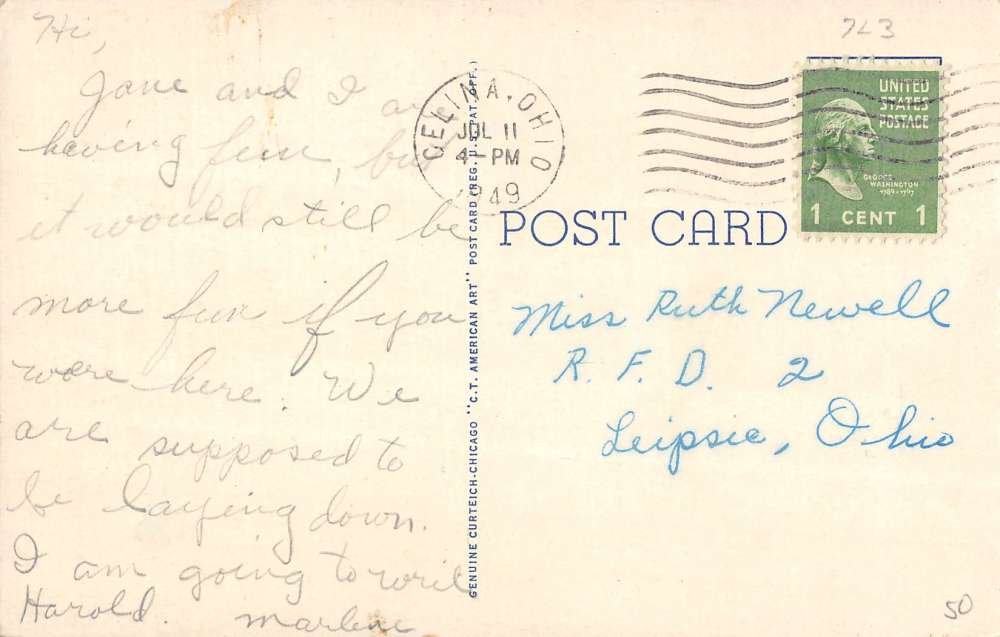 Hi,
Jane and I are
having fun, but
it would still be
more fun if you
were here. We
are supposed to
be laying down.
I am going to writ
Harold. Marlene
723
CELINA, OHIO
JUL 11
4 - PM
1949
UNITED
STATES
POSTAGE
GEORGE
WASHINGTON
1789-1797
1 CENT 1
POST CARD
Miss Ruth Newell
R. F. D. 2
Leipsic, Ohio
GENUINE CURTEICH-CHICAGO "C.T. AMERICAN ART" POST CARD (REG. U.S. PAT. OFF.)
50